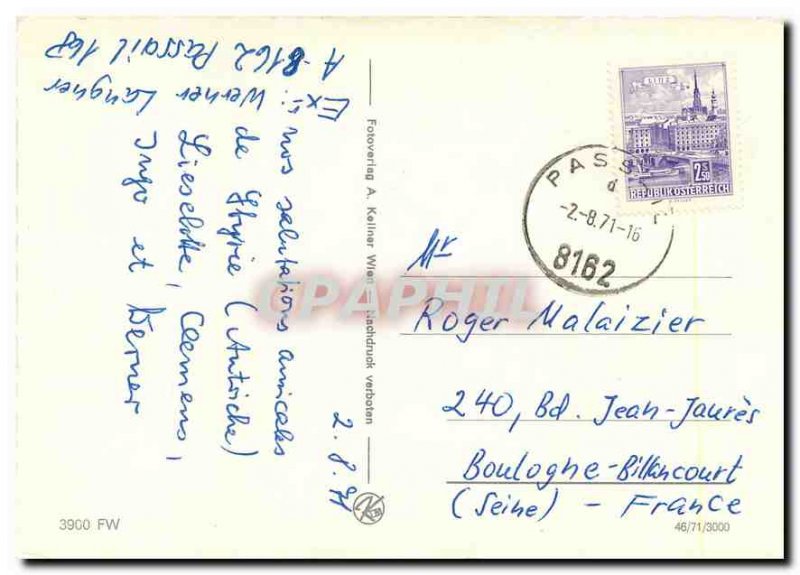 A-8162 Passail 168
Ex.: Werner Langner
2.8.71
nos salutations amicales
de Styrie (Autriche)
Lieselotte, Clemens,
Ingo et Werner
Fotoverlag A. Kellner Wien — Nachdruck verboten
3900 FW
LINZ
2.50
REPUBLIK ÖSTERREICH
PASS
-2.-8.71-16
8162
Mr
Roger Malaizier
240, Bd. Jean-Jaurès
Boulogne-Billancourt
(Seine) - France
46/71/3000
CPAPHIL